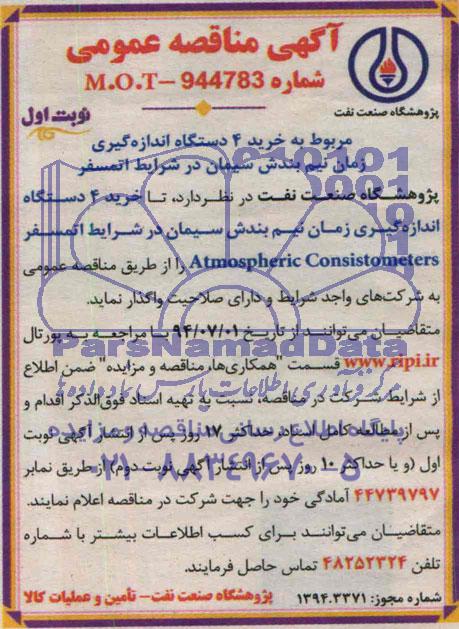 آگهی مناقصه عمومی
شماره M.O.T– 944783
پژوهشگاه صنعت نفت
نوبت اول
مربوط به خرید ۴ دستگاه اندازه‌گیری
زمان نیم بندش سیمان در شرایط اتمسفر
پژوهشگاه صنعت نفت در نظر دارد، تا خرید ۴ دستگاه
اندازه‌گیری زمان نیم بندش سیمان در شرایط اتمسفر
Atmospheric Consistometers را از طریق مناقصه عمومی
به شرکت‌های واجد شرایط و دارای صلاحیت واگذار نماید.
متقاضیان می‌توانند از تاریخ ۹۴/۰۷/۰۱ با مراجعه به پورتال
www.ripi.ir قسمت "همکاری‌ها، مناقصه و مزایده" ضمن اطلاع
از شرایط شرکت در مناقصه، نسبت به تهیه اسناد فوق‌الذکر اقدام و
پس از مطالعه کامل اسناد، حداکثر ۱۷ روز پس از انتشار آگهی نوبت
اول (و یا حداکثر ۱۰ روز پس از انتشار آگهی نوبت دوم) از طریق نمابر
۴۴۷۳۹۷۹۷ آمادگی خود را جهت شرکت در مناقصه اعلام نمایند.
متقاضیان می‌توانند برای کسب اطلاعات بیشتر با شماره
تلفن ۴۸۲۵۲۳۲۴ تماس حاصل فرمایند.
شماره مجوز: ۱۳۹۴.۳۳۷۱
پژوهشگاه صنعت نفت– تأمین و عملیات کالا
ParsNamadData
پایگاه اطلاع رسانی مناقصه و مزایده
۰۲۱-۸۸۳۴۹۶۷۰-۵